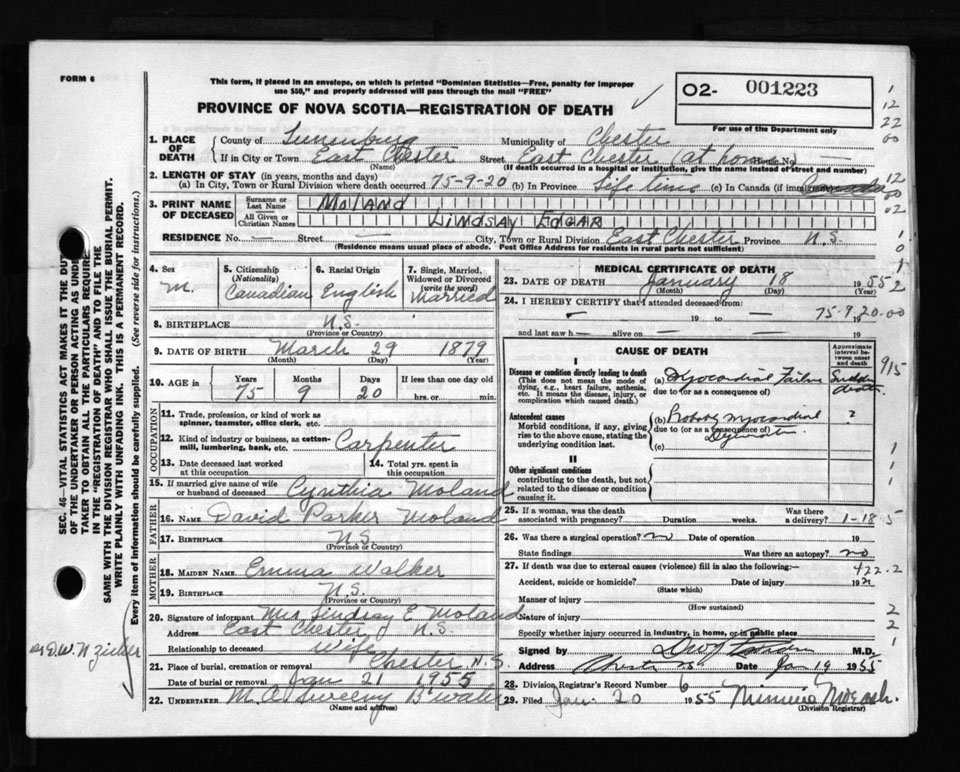 FORM 6
This form, if placed in an envelope, on which is printed "Dominion Statistics—Free, penalty for improper
use $50," and properly addressed will pass through the mail "FREE"
PROVINCE OF NOVA SCOTIA—REGISTRATION OF DEATH
O2- 001223
For use of the Department only
1. PLACE OF DEATH
County of Lunenburg Municipality of Chester
If in City or Town East Chester Street East Chester (at home) House No. —
(Name) (If death occurred in a hospital or institution, give the name instead of street and number)
2. LENGTH OF STAY (in years, months and days)
(a) In City, Town or Rural Division where death occurred 75-9-20 (b) In Province Life time (c) In Canada (if immigrant)
3. PRINT NAME OF DECEASED
Surname or Last Name MOLAND
All Given or Christian Names LINDSAY EDGAR
RESIDENCE No. — Street — City, Town or Rural Division East Chester Province N.S.
(Residence means usual place of abode. Post Office Address for residents in rural parts not sufficient)
4. Sex M.
5. Citizenship (Nationality) Canadian
6. Racial Origin English
7. Single, Married, Widowed or Divorced (write the word) Married
8. BIRTHPLACE N.S.
(Province or Country)
9. DATE OF BIRTH March 29 1879
(Month) (Day) (Year)
10. AGE in Years 75 Months 9 Days 20 If less than one day old hrs. or min.
OCCUPATION
11. Trade, profession, or kind of work as spinner, teamster, office clerk, etc.
12. Kind of industry or business, as cotton-mill, lumbering, bank, etc. Carpenter
13. Date deceased last worked at this occupation
14. Total yrs. spent in this occupation
15. If married give name of wife or husband of deceased Cynthia Moland
FATHER
16. NAME David Parker Moland
17. BIRTHPLACE N.S.
(Province or Country)
MOTHER
18. MAIDEN NAME Emma Walker
19. BIRTHPLACE N.S.
(Province or Country)
20. Signature of informant Mrs Lindsay E Moland
Address East Chester N.S.
Relationship to deceased Wife
21. Place of burial, cremation or removal Chester N.S.
Date of burial or removal Jan 21 1955
22. UNDERTAKER M. A. Sweeny B'water
(Name and address)
MEDICAL CERTIFICATE OF DEATH
23. DATE OF DEATH January 18 1955
(Month) (Day) (Year)
24. I HEREBY CERTIFY that I attended deceased from:
— 19 to — 19
75-9-20.00
and last saw h— alive on — 19
CAUSE OF DEATH
Approximate interval between onset and death
I
Disease or condition directly leading to death
(This does not mean the mode of dying, e.g., heart failure, asthenia, etc. It means the disease, injury, or complication which caused death.)
(a) Myocardial Failure Sudden
due to (or as a consequence of)
915
Antecedent causes
Morbid conditions, if any, giving rise to the above cause, stating the underlying condition last.
(b) Probably myocardial ?
due to (or as a consequence of)
(c)
II
Other significant conditions
contributing to the death, but not related to the disease or condition causing it.
25. If a woman, was the death associated with pregnancy? Duration weeks. Was there a delivery?
1-18-5
26. Was there a surgical operation? no Date of operation 19
State findings Was there an autopsy? no
27. If death was due to external causes (violence) fill in also the following:—
422.2
Accident, suicide or homicide? Date of injury 19
(State which)
Manner of injury
(How sustained)
Nature of injury
Specify whether injury occurred in industry, in home, or in public place
Signed by M.D.
Address Chester NS Date Jan 19 1955
28. Division Registrar's Record Number 6
29. Filed Jan. 20 1955 Minnie
(Division Registrar)
SEC. 46 VITAL STATISTICS ACT MAKES IT THE DUTY
OF THE UNDERTAKER OR PERSON ACTING AS UNDER-
TAKER TO OBTAIN ALL THE PARTICULARS REQUIRED
IN THE "REGISTRATION OF DEATH" AND TO FILE THE
SAME WITH THE DIVISION REGISTRAR WHO SHALL ISSUE THE BURIAL PERMIT.
WRITE PLAINLY WITH UNFADING INK. THIS IS A PERMANENT RECORD.
Every item of information should be carefully supplied. (See reverse side for instructions.)